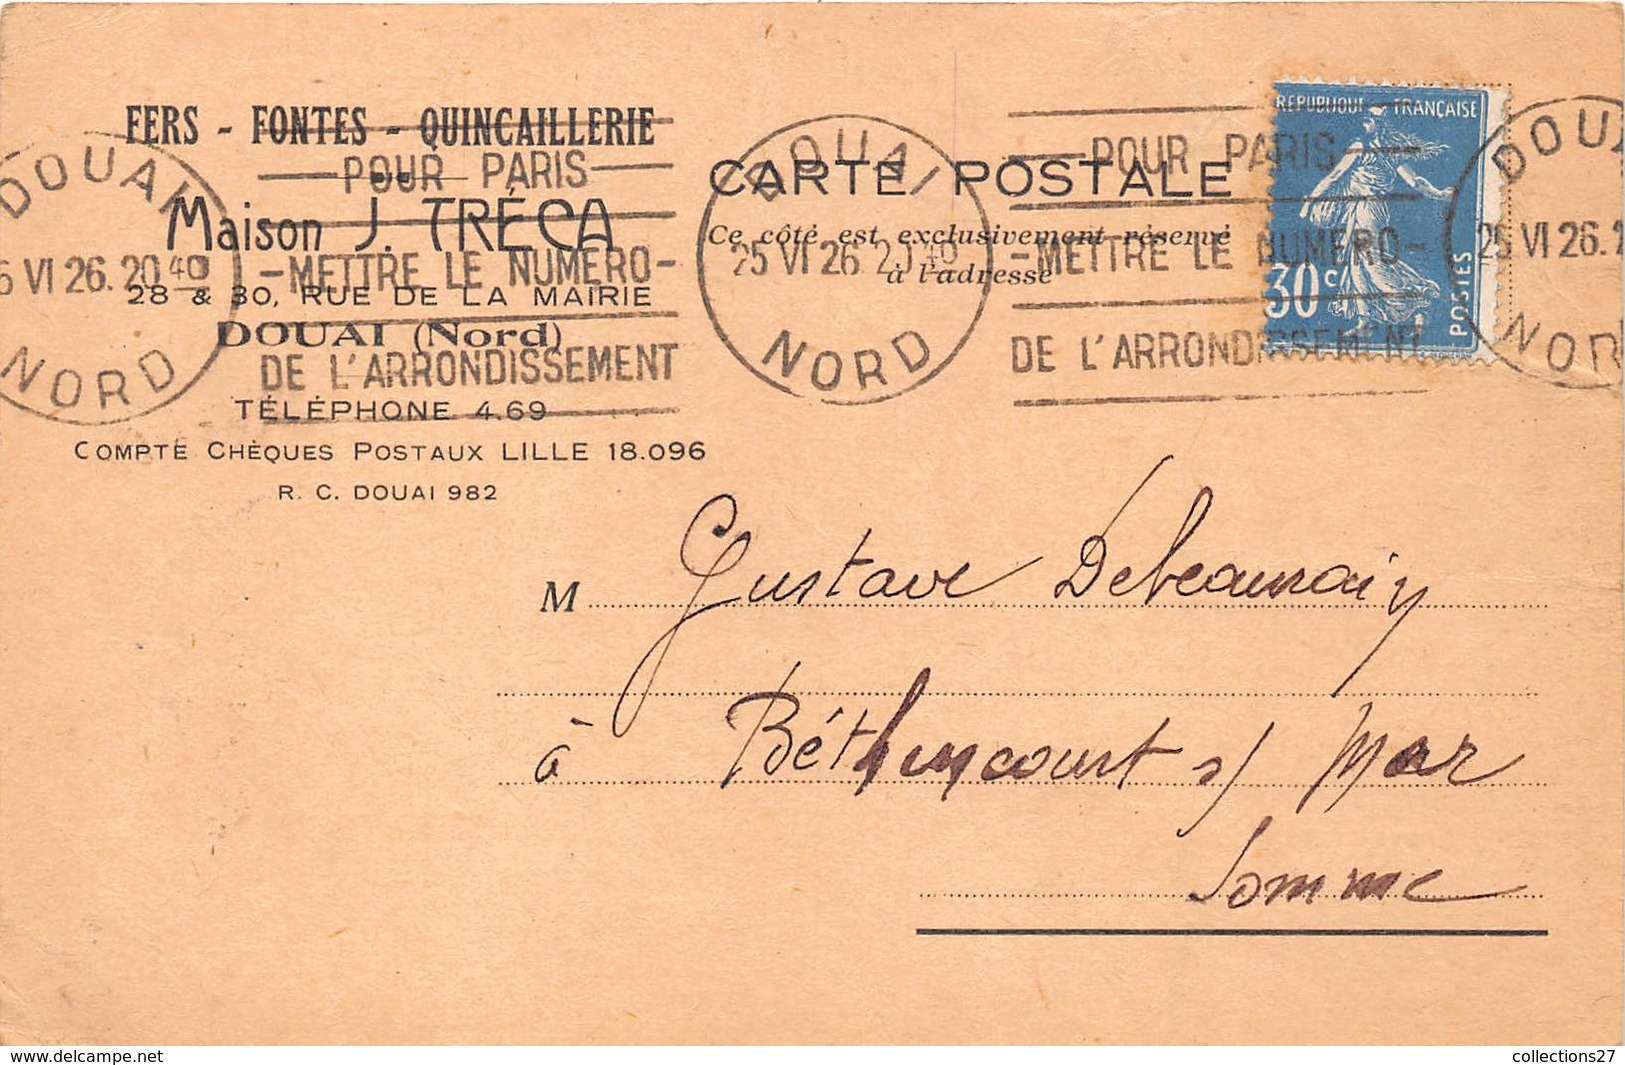 FERS - FONTES - QUINCAILLERIE
Maison J. TRÉCA
28 & 30, RUE DE LA MAIRIE
DOUAI (Nord)
TÉLÉPHONE 4.69
COMPTE CHÈQUES POSTAUX LILLE 18.096
R. C. DOUAI 982
DOUAI
25 VI 26. 20 40
NORD
POUR PARIS
-METTRE LE NUMERO-
DE L'ARRONDISSEMENT
CARTE POSTALE
Ce côté est exclusivement réservé
à l'adresse
DOUAI
25 VI 26 20 40
NORD
POUR PARIS
-METTRE LE NUMERO-
DE L'ARRONDISSEMENT
REPUBLIQUE FRANÇAISE
30 c
POSTES
DOUA
25 VI 26. 2
NOR
M Gustave
à Béthencourt s/ Mer
Somme
www.delcampe.net
collections27